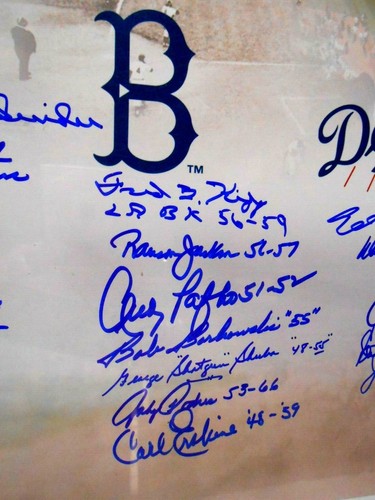 B
™
De
Snider
Fred G. Kipp
LA BK 56-59
Ransom Jackson 56-57
Andy Pafko 51-52
Bob Borkowski "55"
George "Shotgun" Shuba "48-55"
53-66
Carl Erskine '48-'59